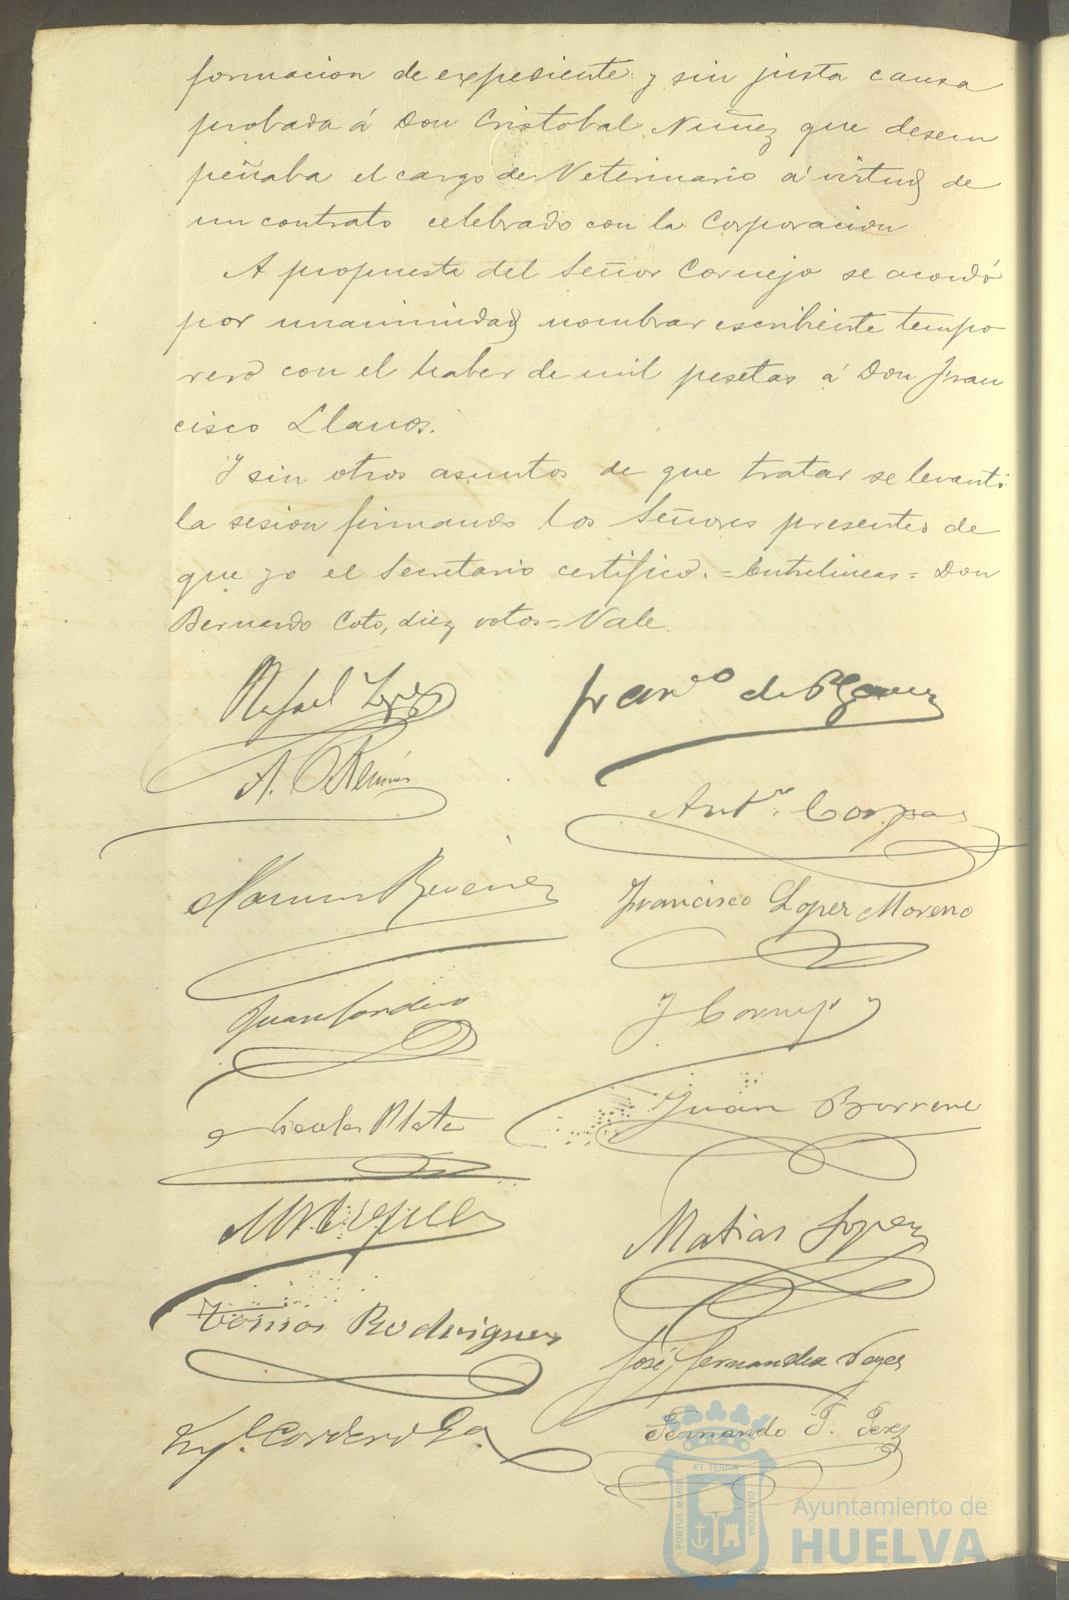 formacion de expediente y sin justa causa
probada á Don Cristobal Nuñez que desem
peñaba el cargo de Veterinario á virtud de
un contrato celebrado con la Corporacion
A propuesta del Señor Cornejo se acordó
por unanimidad nombrar escribiente tempo
rero con el haber de mil pesetas á Don Fran
cisco Llanos.
Y sin otros asuntos de que tratar se levantó
la sesion firmando los Señores presentes de
que yo el Secretario certifico. = Entrelineas = Don
Bernardo Coto, diez votos = Vale.
Rafael Lopez
Franco de P
A.
Anto. Corpas
Francisco Lopez Moreno
Juan Cordero
J Cornejo
Nicolas Plata
Juan Borrero
Matias Lopez
Tomas Rodriguez
José Fernandez
Cordero
Fernando T. Perez
PORTUS MARIS ET TERRÆ CUSTODIA
Ayuntamiento de
HUELVA